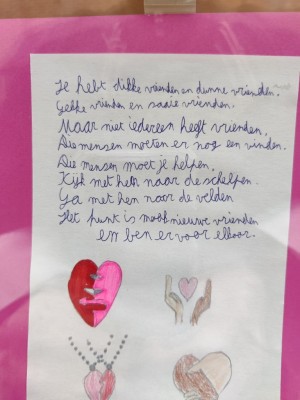 Je hebt dikke vrienden en dunne vrienden.
Gekke vrienden en saaie vrienden.
Maar niet iedereen heeft vrienden,
Die mensen moeten er nog een vinden.
Die mensen moet je helpen,
Kijk met hen naar de schelpen.
Ga met hen naar de velden
Het punt is maak nieuwe vrienden
en ben er voor elkaar.